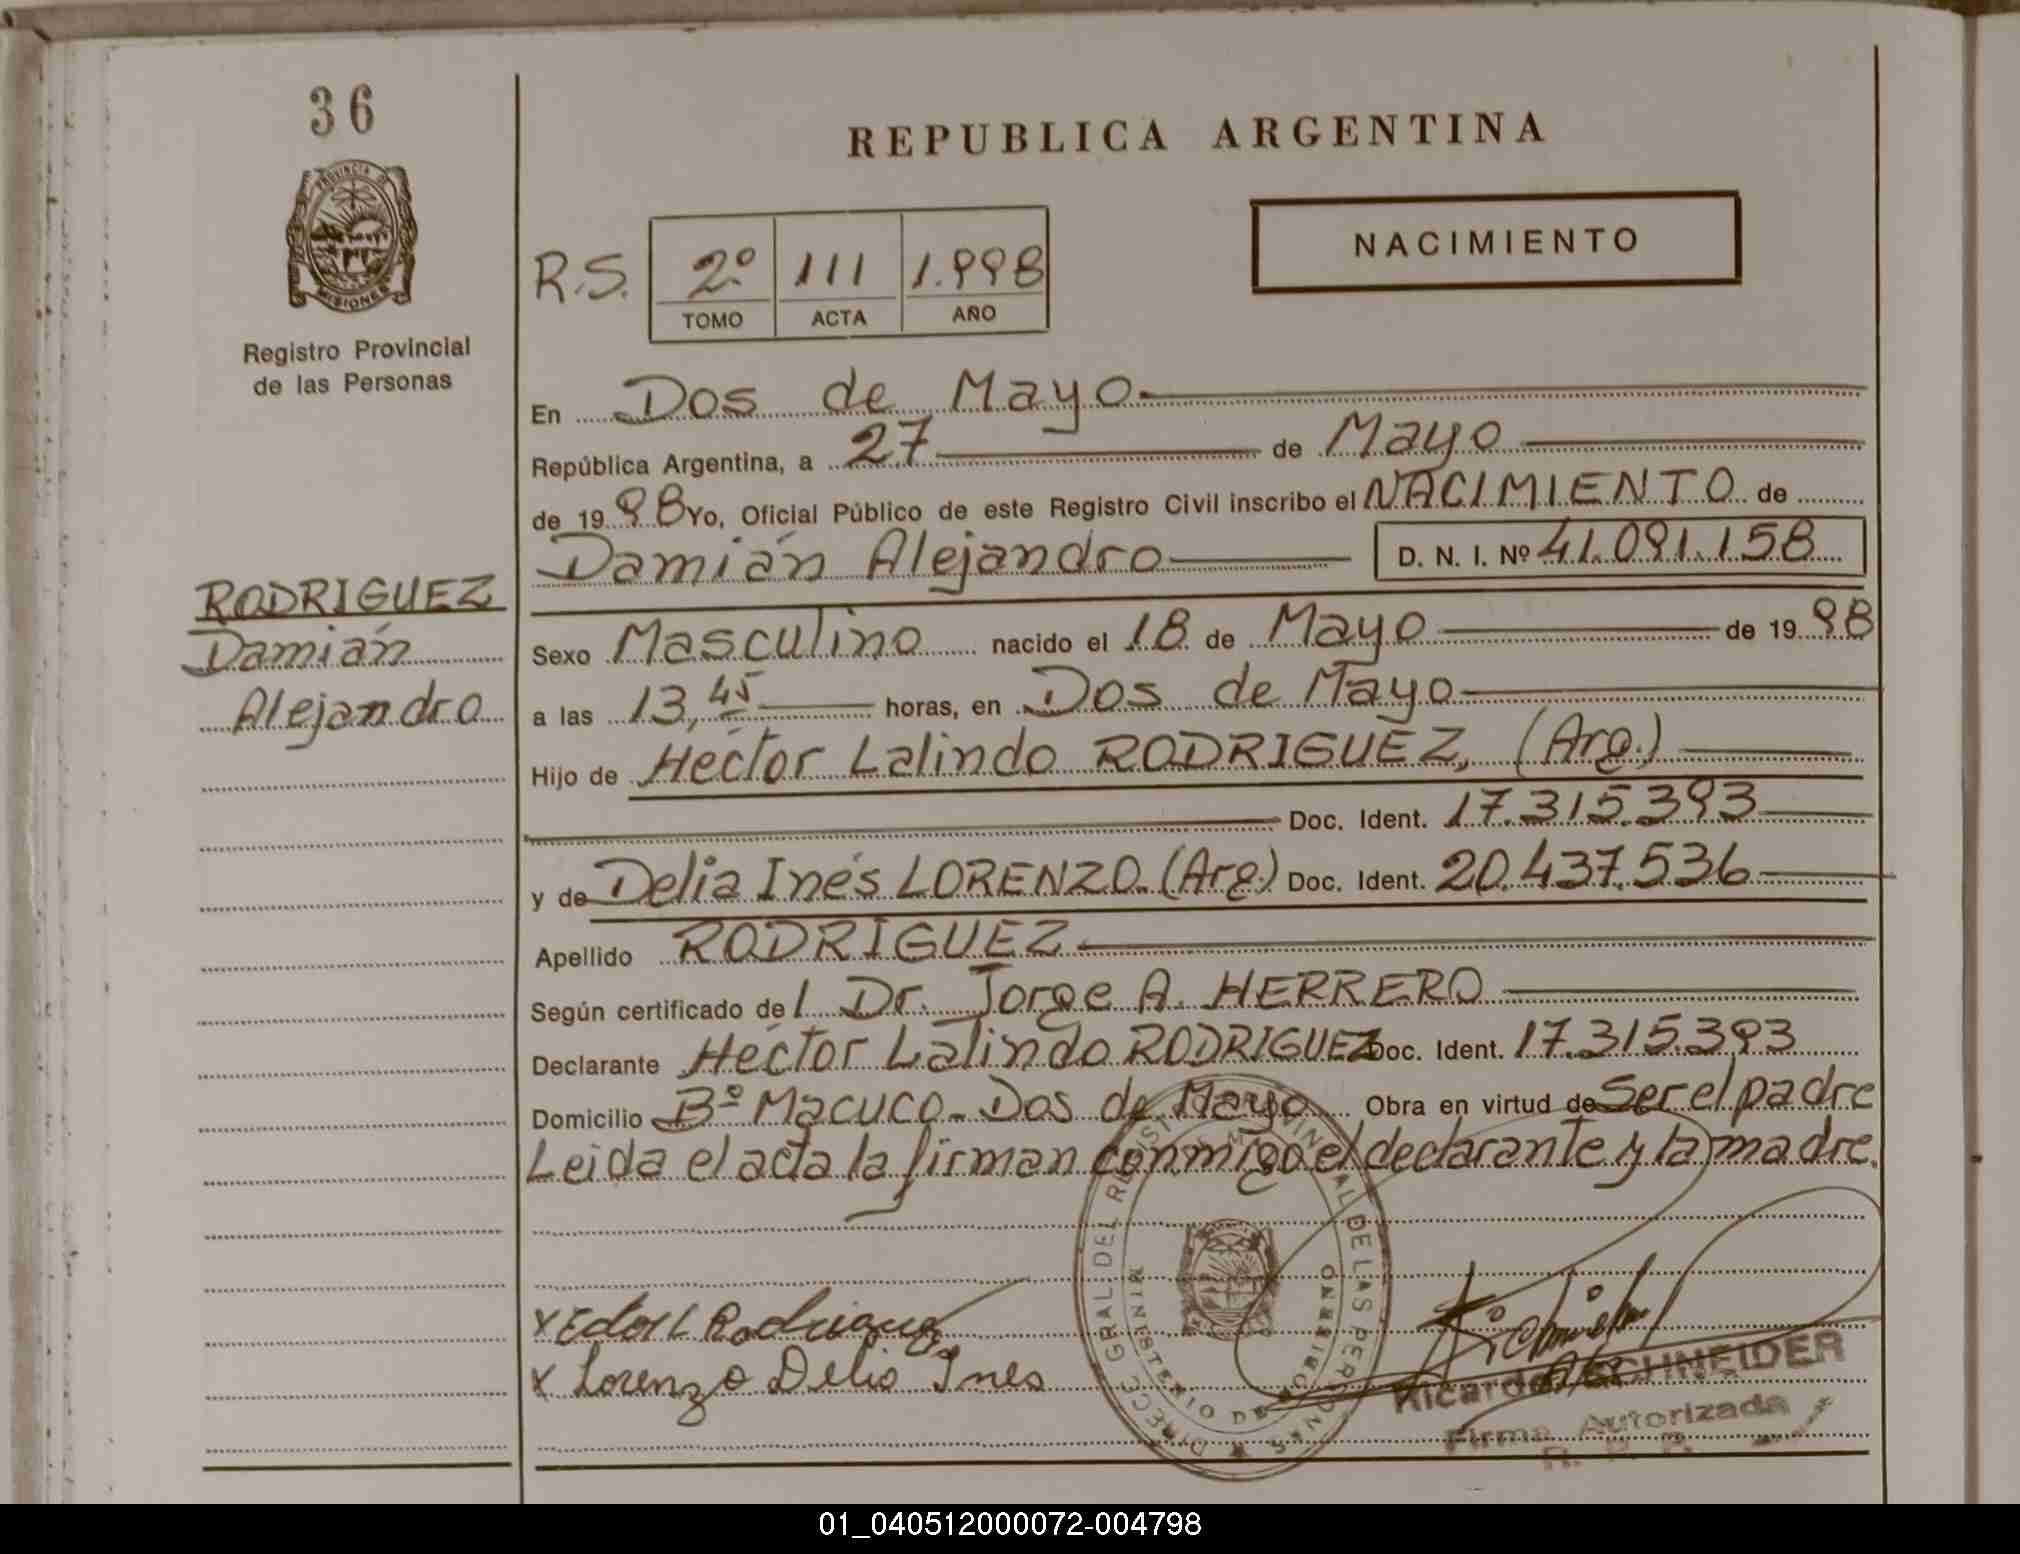 36
PROVINCIA DE
MISIONES
Registro Provincial
de las Personas
RODRIGUEZ
Damián
Alejandro
REPUBLICA ARGENTINA
NACIMIENTO
R.S. 2º 111 1.998
TOMO ACTA AÑO
En Dos de Mayo
República Argentina, a 27 de Mayo
de 1998 Yo, Oficial Público de este Registro Civil inscribo el NACIMIENTO de
Damián Alejandro D. N. I. Nº 41.091.158
Sexo Masculino nacido el 18 de Mayo de 1998
a las 13,45 horas, en Dos de Mayo
Hijo de Héctor Lalindo RODRIGUEZ, (Arg.)
Doc. Ident. 17.315.393
y de Delia Inés LORENZO (Arg.) Doc. Ident. 20.437.536
Apellido RODRIGUEZ
Según certificado del Dr. Jorge A. HERRERO
Declarante Héctor Lalindo RODRIGUEZ Doc. Ident. 17.315.393
Domicilio Bº Macuco - Dos de Mayo Obra en virtud de Ser el padre
Leida el acta la firman conmigo el declarante y la madre.
DIRECC GRAL DEL REGIST PROVINCIAL DE LAS PERSONAS
MINISTERIO DE GOBIERNO
X Ector L Rodriguez
X Lorenzo Delia Ines
Ricardo SCHNEIDER
Firma Autorizada
01_040512000072-004798